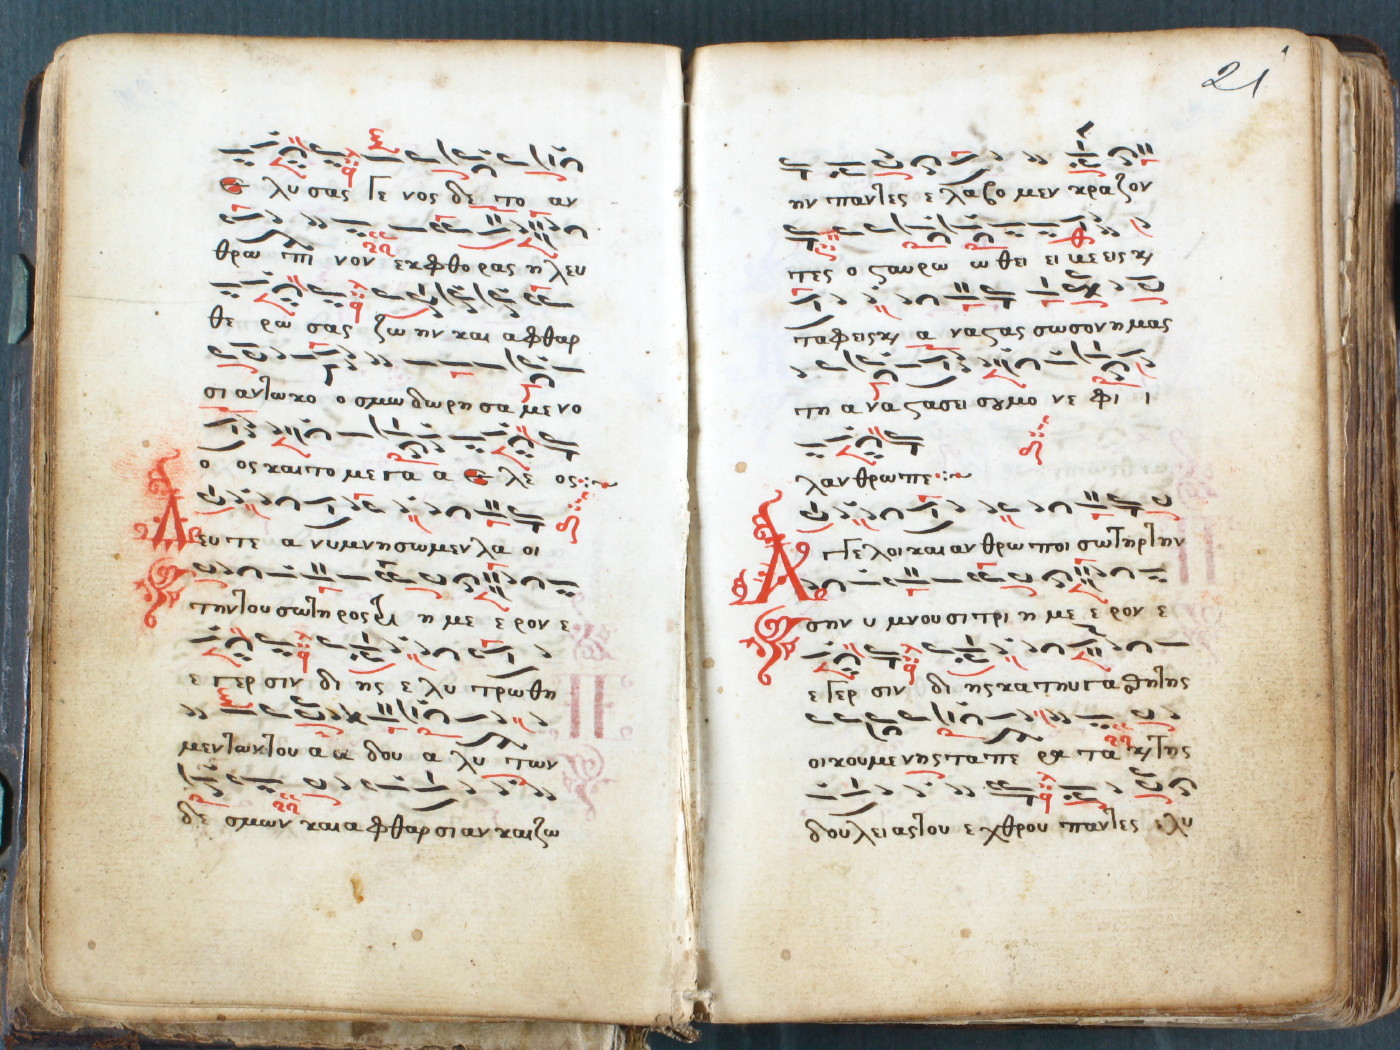 ε λυσας Γε νος δε το αν
θρω πι νον εκ φθο ρας η λευ
θε ρω σας ζω ην και α φθαρ
σι αν τω κο ο σμω δω ρη σα με νο
ο ος και το με γα α ε λε ος
Δευ τε α νυ μνη σω μεν λα οι
την του σω τη ρος τρι η με ε ρον ε
ε γερ σιν δι ης ε λυ τρω θη
μεν των του α α δου α λυ των
δε σμων και α φθαρ σι αν και ζω
21
ην παντες ε λαβο μεν κραζον
τες ο σαυρω ω θει εις κ
ταφεις κ α νασας σωσον ημας
τη α νασασει σου μο νε φι ι
λαν θρωπε
Α Γγε λοι και αν θρω ποι σωτηρ την
σην υ μνουσι τρι η με ε ρον ε
ε γερ σιν δι ης κατηυγασθη της
οικουμενης τα πε ρα τα κ της
δουλειας του ε χθρου παντες ελυ